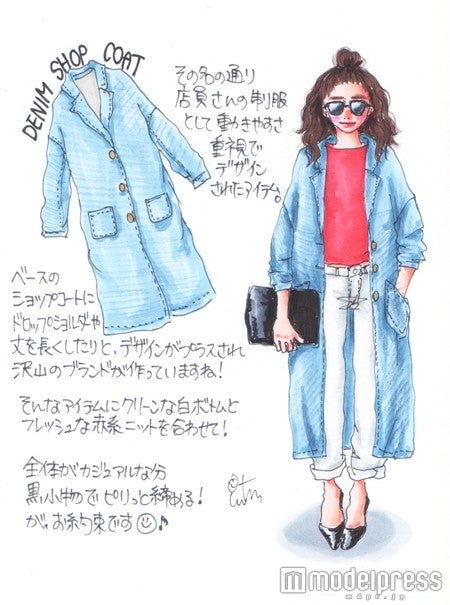 DENIM SHOP COAT
その名の通り
店員さんの制服
として動きやすさ
重視で
デザイン
されたアイテム。
ベースの
ショップコートに
ドロップショルダーや
丈を長くしたりと、デザインがプラスされ
沢山のブランドが作っていますね!
そんなアイテムにクリーンな白ボトムと
フレッシュな赤系ニットを合わせて!
全体がカジュアルな分
黒小物でピリっと締める!
が、お約束です♪
modelpress
mdpr.jp